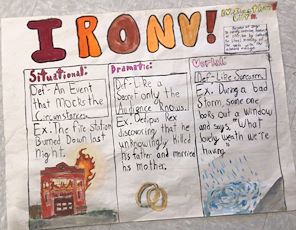 IRONY!
Situational:
Def- An Event
that Mocks the
Circumstances.
Ex. The Fire Station
Burned Down last
Night.
Dramatic:
Def- Like a
Secret only the
Audience Knows.
Ex. Oedipus Rex
discovering that he
unknowingly killed
his father and married
his mother.
Verbal:
Def- Like Sarcasm.
Ex. During a bad
Storm, someone
looks out a window
and says, "What
lovely weath we're
having."